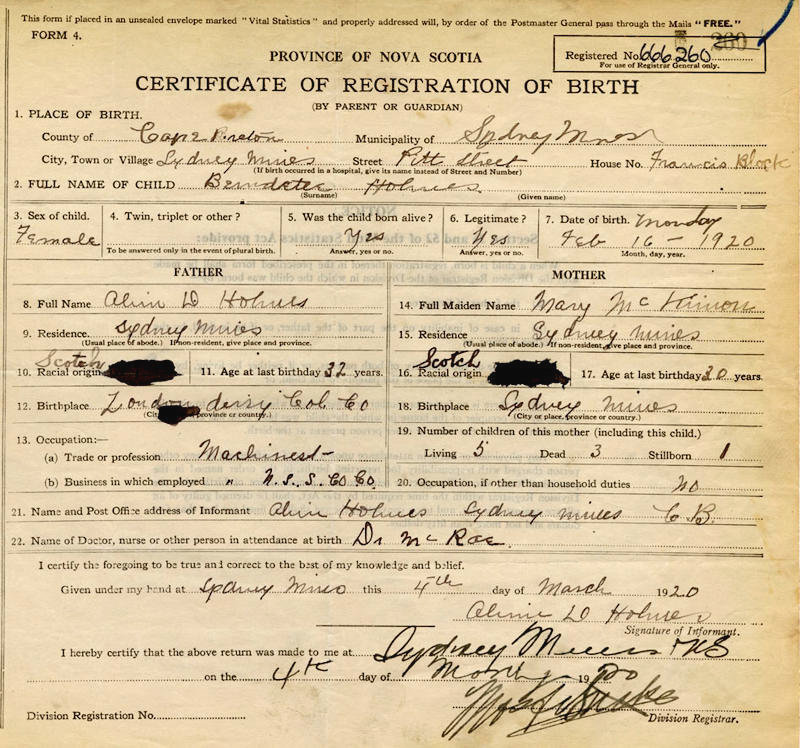 This form if placed in an unsealed envelope marked "Vital Statistics" and properly addressed will, by order of the Postmaster General pass through the Mails "FREE."
FORM 4.
PROVINCE OF NOVA SCOTIA
Registered No. 666260
For use of Registrar General only.
CERTIFICATE OF REGISTRATION OF BIRTH
(BY PARENT OR GUARDIAN)
1. PLACE OF BIRTH.
County of Cape Breton Municipality of Sydney Mines
City, Town or Village Sydney Mines Street Pitt Street House No. Francis Block
(If birth occurred in a hospital, give its name instead of Street and Number)
2. FULL NAME OF CHILD Holmes
(Surname) (Given name)
3. Sex of child. 4. Twin, triplet or other? 5. Was the child born alive? 6. Legitimate? 7. Date of birth. Monday
Female Yes Yes Feb 16 - 1920
To be answered only in the event of plural birth. Answer, yes or no. Answer, yes or no. Month, day, year.
FATHER MOTHER
8. Full Name D Holmes 14. Full Maiden Name Mary McKinnon
9. Residence. Sydney Mines 15. Residence Sydney mines
(Usual place of abode.) If non-resident, give place and province. (Usual place of abode.) If non-resident, give place and province.
Scotch Scotch
10. Racial origin 11. Age at last birthday 32 years. 16. Racial origin 17. Age at last birthday 30 years.
12. Birthplace Londonderry Col. Co 18. Birthplace Sydney mines
(City or place, province or country.) (City or place, province or country.)
13. Occupation:— 19. Number of children of this mother (including this child.)
(a) Trade or profession Machinest Living 5 Dead 3 Stillborn 1
(b) Business in which employed " N. S. S. Co Co. 20. Occupation, if other than household duties No
21. Name and Post Office address of Informant Holmes Sydney mines C B.
22. Name of Doctor, nurse or other person in attendance at birth Dr McRae
I certify the foregoing to be true and correct to the best of my knowledge and belief.
Given under my hand at Sydney Mines this 4th day of March 1920
D Holmes
Signature of Informant.
I hereby certify that the above return was made to me at Sydney Mines NS
on the 4th day of 1920
Division Registration No. Division Registrar.